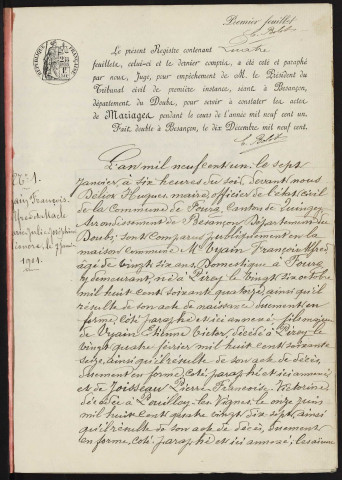 Premier feuillet
Le présent Registre contenant quatre
feuillets, celui-ci et le dernier compris, a été coté et paraphé
par nous, Juge, pour empêchement de M. le Président du
Tribunal civil de première instance, séant à Besançon,
département du Doubs, pour servir à constater les actes
de Mariages pendant le cours de l'année mil neuf cent un.
Fait double à Besançon, le dix Décembre mil neuf cent.
RÉPUBLIQUE FRANÇAISE
N° 1.
François
Joséphine
le 7 janvier
1901.
L'an mil neuf cent un, le sept
Janvier à six heures du soir, devant nous
Hugues, maire, officier de l'état civil
de la Commune de Canton de Quingey
Arrondissement de Besançon Département du
Doubs, sont comparus publiquement en la
maison commune, M. Vyain François Alfred
âgé de vingt six ans Domestique à
y demeurant, né à le vingt six octobre
mil huit cent soixante quatorze, ainsi qu'il
résulte de son acte de naissance dûment en
forme, coté paraphé et ici annexé, fils majeur
de Vyain Etienne Victor décédé à le
vingt quatre février mil huit cent soixante
seize, ainsi qu'il résulte de son acte de décès,
dûment en forme, coté paraphé et ici annexé
et de Joisseau Pierre-Françoise, Victorine
décédée à Pouilley-les-Vignes, le onze juin
mil huit cent quatre vingt dix sept, ainsi
qu'il résulte de son acte de décès, dûment
en forme, coté paraphé et ici annexé;